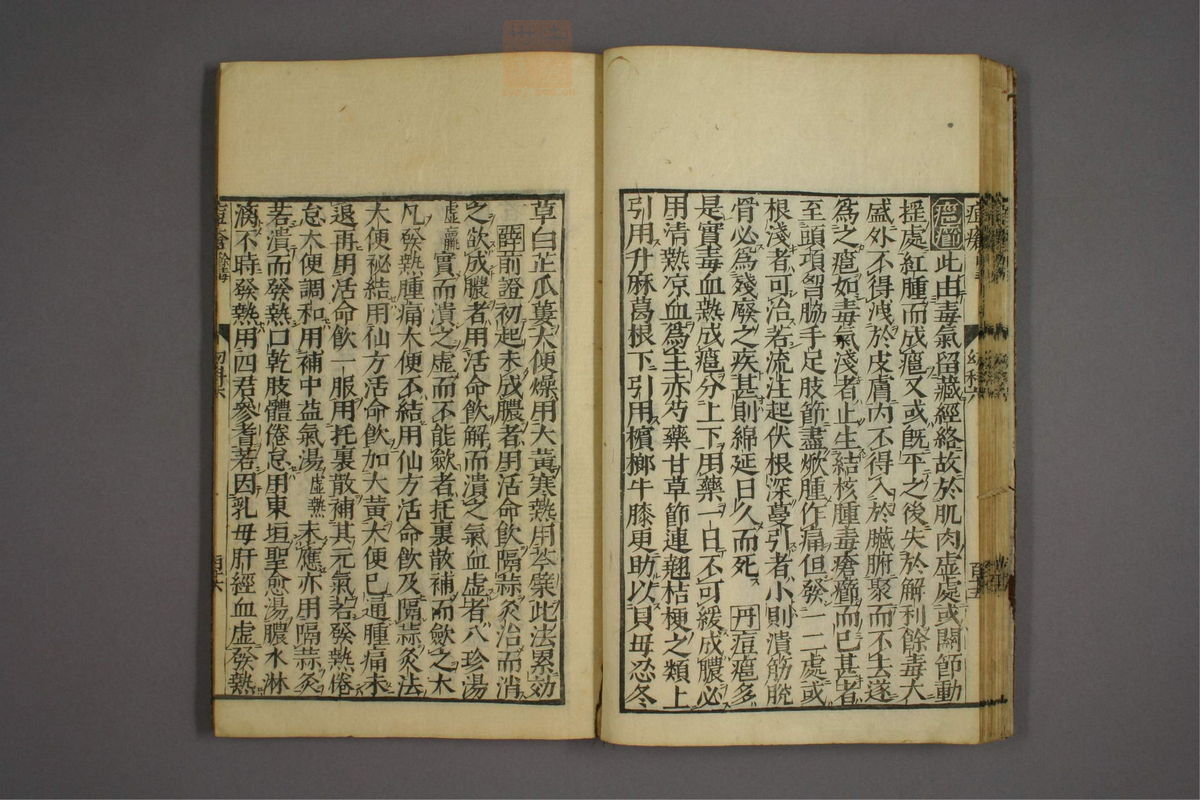 痘瘡
幼科六
此由毒氣留藏經絡故於肌肉虛處或關節動
搖處紅腫而成疽又或既平之後失於解利餘毒大
盛外不得洩於皮膚內不得入於臟腑聚而不去遂
爲之疽如毒氣淺者止生結核腫毒瘡癤而已甚者
至頭項胷脇手足肢節盡焮腫作痛但發一二處或
根淺者可治若流注起伏根深蔓引者小則潰筋脫
骨必爲殘廢之疾甚則綿延日久而死 丹 痘疽多
是實毒血熱成疽分上下用藥一日不可緩成膿必
用清熱凉血爲主赤芍藥甘草節連翹桔梗之類上
引用升麻葛根下引用檳榔牛膝更助以貝母忍冬
草白芷瓜蔞大便燥用大黃寒熱用芩蘗此法累効
薛 前證初起未成膿者用活命飲隔蒜灸治而消
之欲成膿者用活命飲解而潰之氣血虛者八珍湯
虛羸實而潰之虛而不能歛者托裏散補而歛之大
凡發熱腫痛大便不結用仙方活命飲及隔蒜灸法
大便祕結用仙方活命飲加大黃大便已通腫痛未
退再用活命飲一服用托裏散補其元氣若發熱倦
怠大便調和用補中益氣湯虛熱未應亦用隔蒜灸
若潰而發熱口乾肢體倦怠用東垣聖愈湯膿水淋
漓不時發熱用四君參芪若因乳母肝經血虛發熱
痘瘡餘毒
幼科六